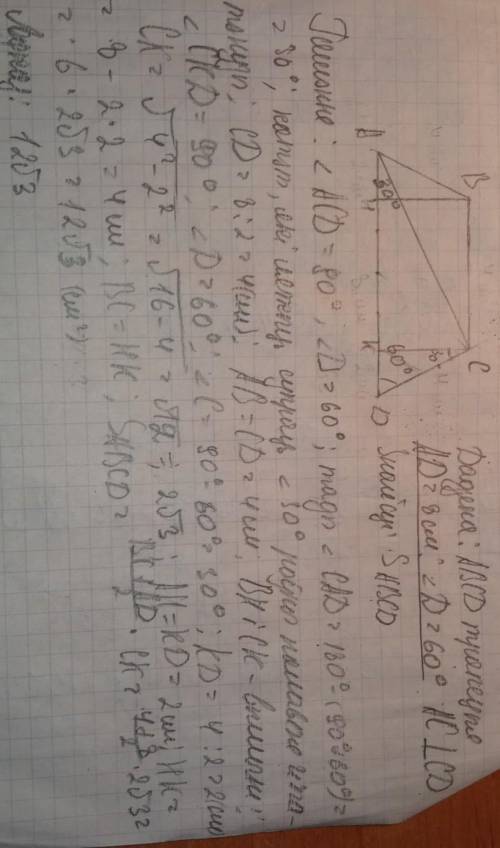 Дадзена: ABCD трапецыя
AD=8см; ∠D=60° AC⊥CD
Знайсці: S ABCD
A B C D H K 30° 60° 30
Рашэнне: ∠ACD=90°; ∠D=60°; тады ∠CAD=180°-(90°+60°)=
=30°; катэт, які ляжыць супраць ∠30° роўны палавіне гіпа-
тэнузы; CD=8:2=4(см); AB=CD=4см; BH і CK - вышыні;
∠CKD=90°; ∠D=60°; ∠C=90°-60°=30°; KD=4:2=2см
CK=√4²-2²=√16-4=√12=2√3; AH=KD=2см; HK=
=8-2·2=4см; BC=HK; SABCD= BC+AD/2 · CK= 4+8/2 · 2√3=
=6·2√3=12√3 (см²)
Адказ: 12√3